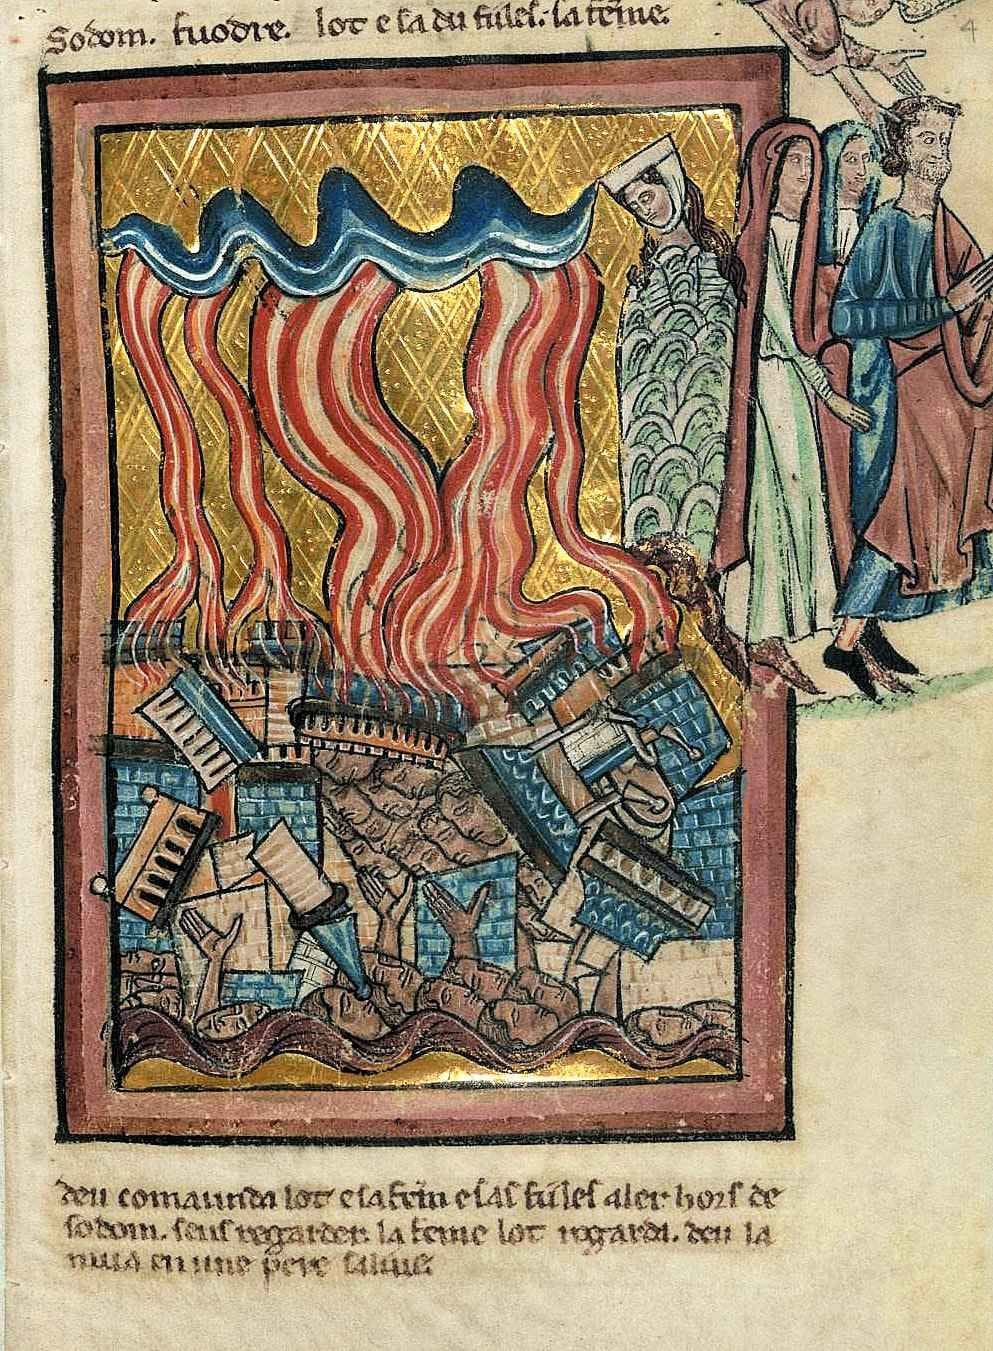 Sodom. fuodre. lot e sa du fules. sa feme.
4
deu comaunda lot e sa fem e sas fules aler hors de
sodom. seus regarder. la feme lot regarda. deu la
mua en une pere salue